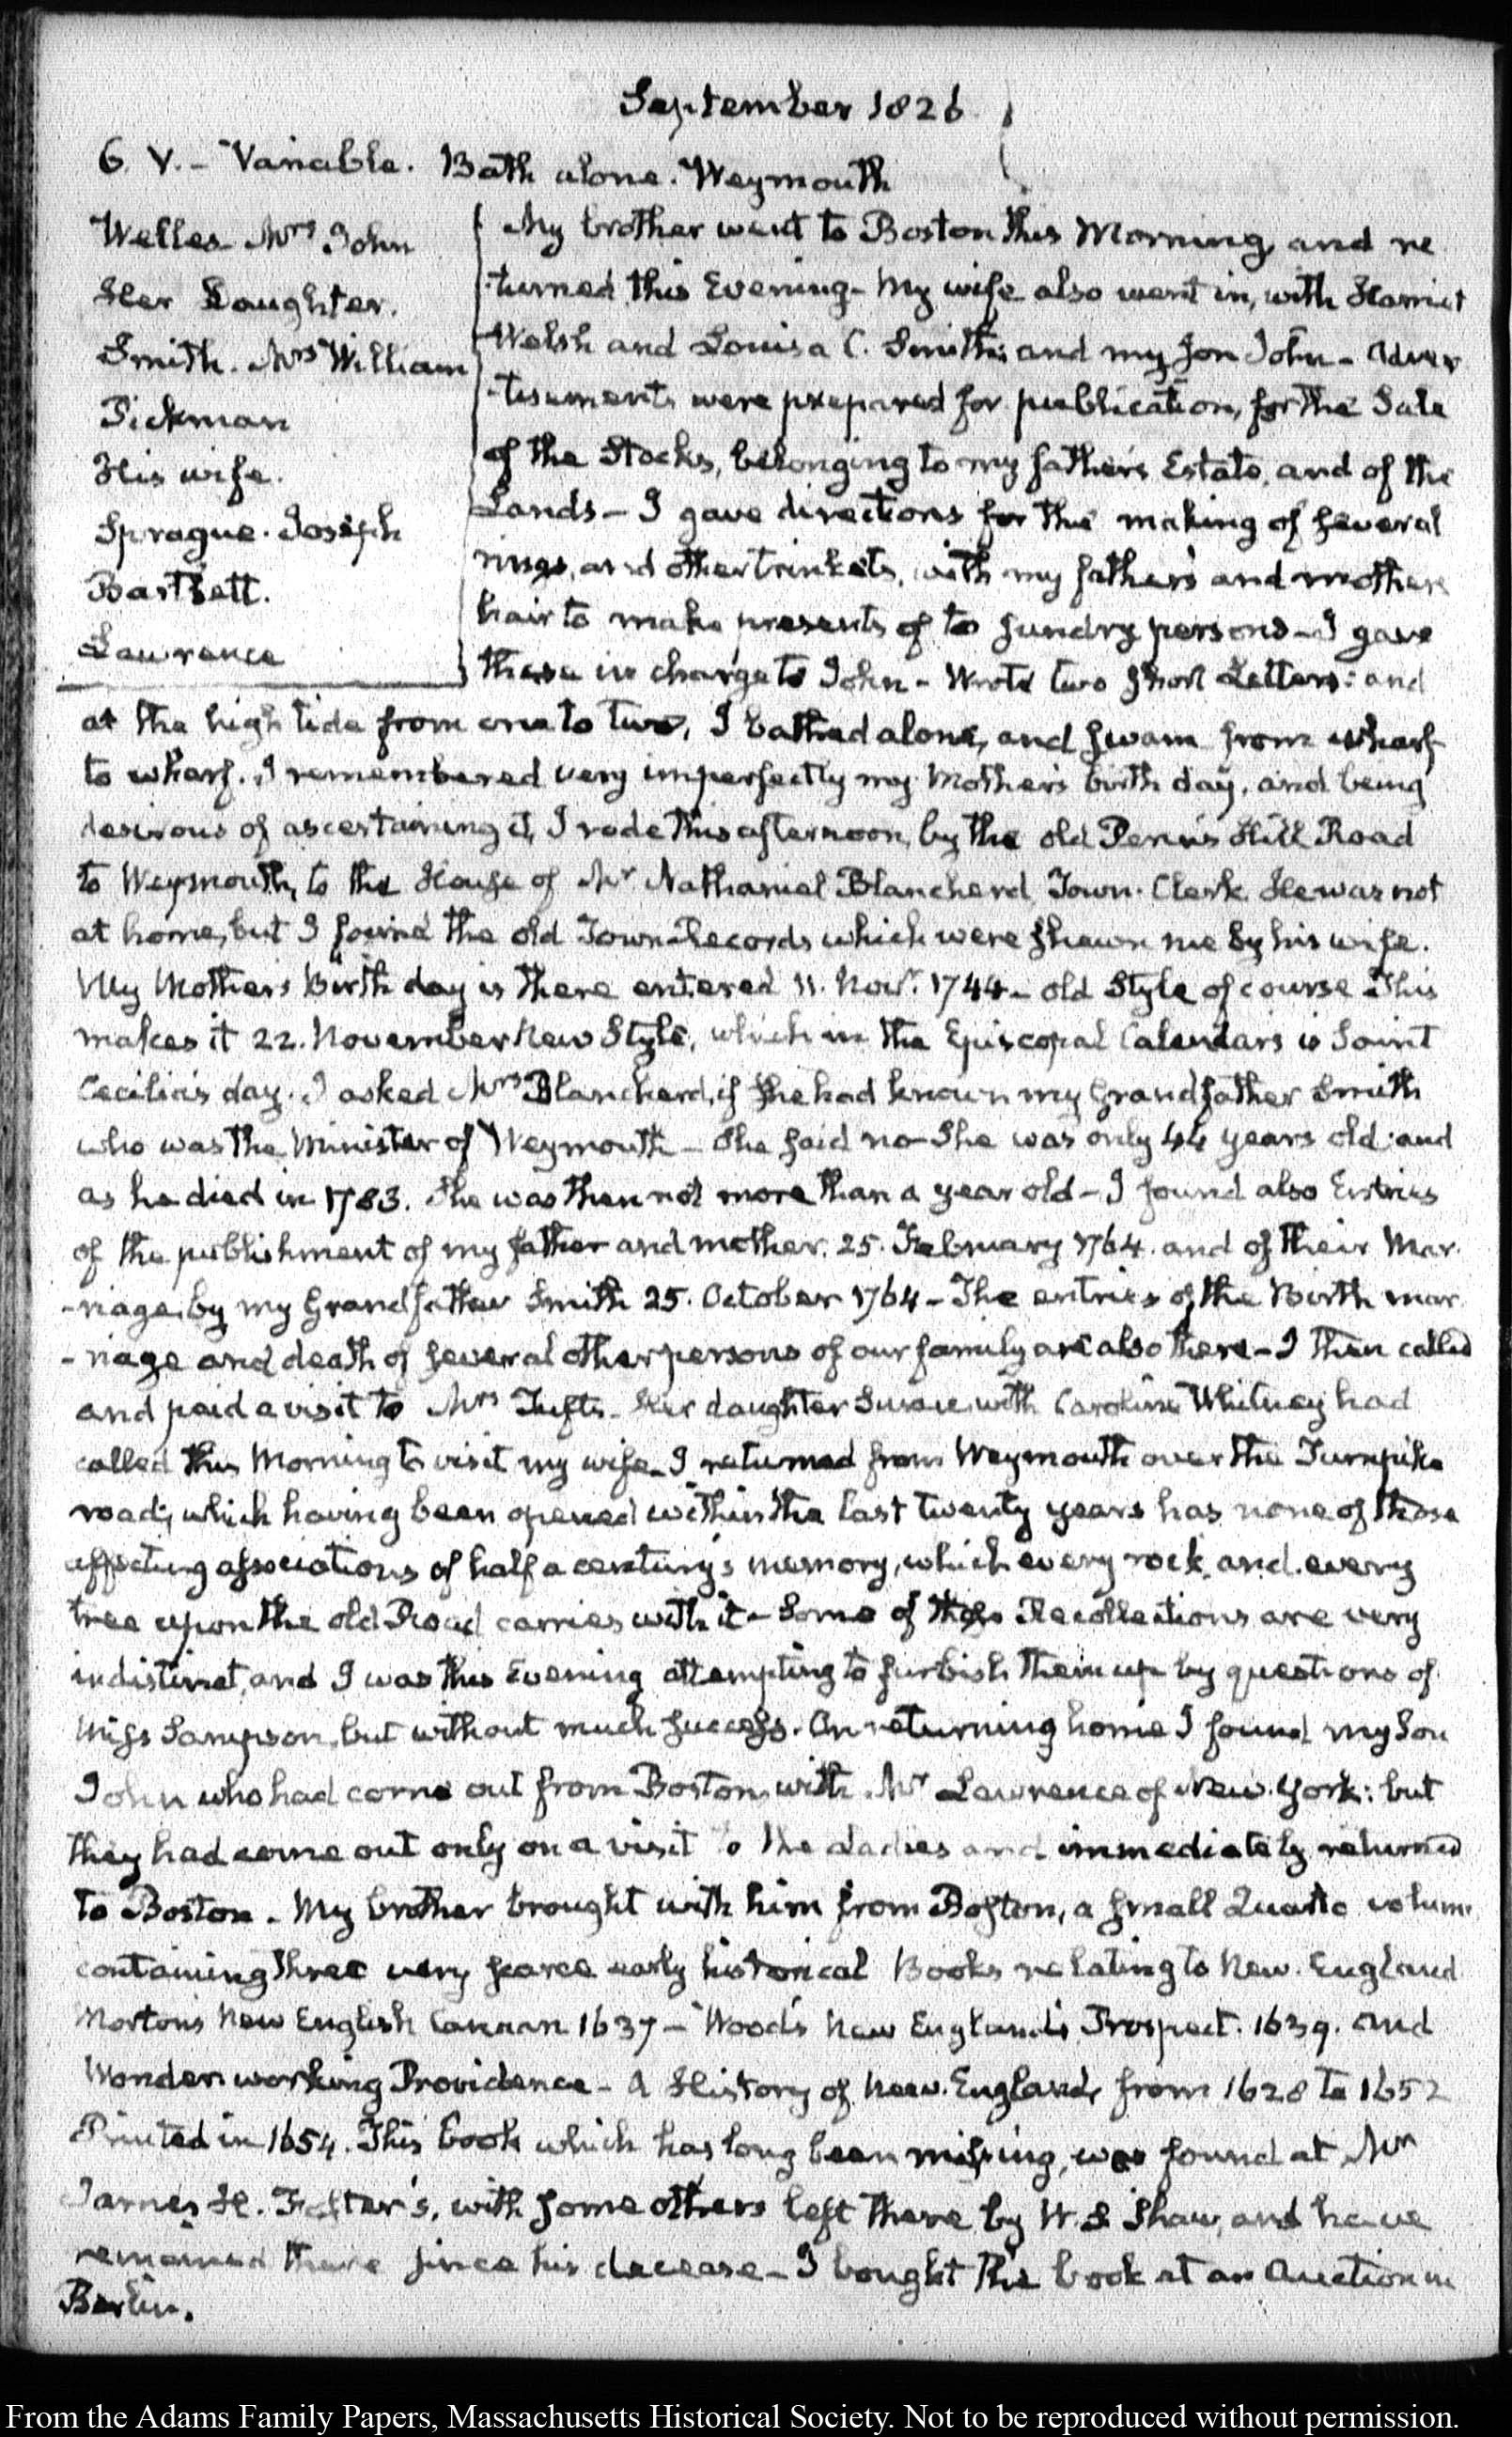 September 1826
6. V. – Variable. Bath alone. Weymouth
Welles Mrs John
Her Daughter.
Smith. Mrs William
Pickman
His wife.
Sprague. Joseph
Bartlett.
Lawrence
My brother went to Boston this Morning and re
-turned this Evening – My wife also went in, with Harriet
Welsh and Louisa C. Smith; and my son John – Adver
-tisements were prepared for publication, for the Sale
of the Stocks, belonging to my father's Estate, and of the
Lands – I gave directions for the making of several
rings, and other trinkets, with my father's and mothers
hair to make presents of to sundry persons – I gave
these in charge to John – Wrote two short Letters: and
at the high tide from one to two, I bathed alone, and swam from wharf
to wharf. I remembered very imperfectly my Mother's birth day, and being
desirous of ascertaining it, I rode this afternoon, by the old Penn's Hill Road
to Weymouth, to the House of Mr Nathaniel Blancherd Town-Clerk. He was not
at home, but I found the old Town-Records which were shewn me by his wife.
My Mother's Birth day is there entered 11. Novr. 1744 – old Style of course This
makes it 22. November New Style, which in the Episcopal Calendars is Saint
Cecilia's day. I asked Mrs Blancherd, if she had known my Grandfather Smith
who was the Minister of Weymouth – She said no – She was only 44 years old: and
as he died in 1783. She was then not more than a year old – I found also Entries
of the publishment of my father and mother. 25. February 1764. and of their Mar.
-riage, by my Grandfather Smith 25. October 1764 – The entries of the Birth mar
-riage and death of several other persons of our family are also there – I then called
and paid a visit to Mrs Tufts – Her daughter Susan, with Caroline Whitney had
called this Morning to visit my wife – I returned from Weymouth over the Turnpike
road; which having been opened within the last twenty years has none of those
affecting associations of half a century's memory, which every rock and every
tree upon the old Road carries with it – Some of these Recollections are very
indistinct, and I was this Evening attempting to furbish them up by questions of
Miss Sampson, but without much success. On returning home I found my Son
John who had come out from Boston with Mr Lawrence of New-York: but
they had come out only on a visit to the Ladies and immediately returned
to Boston – My brother brought with him from Boston, a small Quarto volume
containing three very scarce early historical Books relating to New-England
Morton's New English Canaan 1637 – Wood's New England's Prospect. 1639. and
Wonder working Providence – A History of New-England, from 1628 to 1652
Printed in 1654. This book which has long been missing, was found at Mr
James H. Foster's, with some others left there by W. S Shaw, and have
remained there since his decease – I bought the book at an Auction in
Berlin.
From the Adams Family Papers, Massachusetts Historical Society. Not to be reproduced without permission.